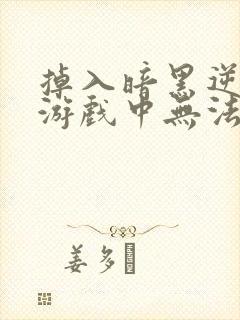 掉入暗黑逆
游戲中無法
姜多